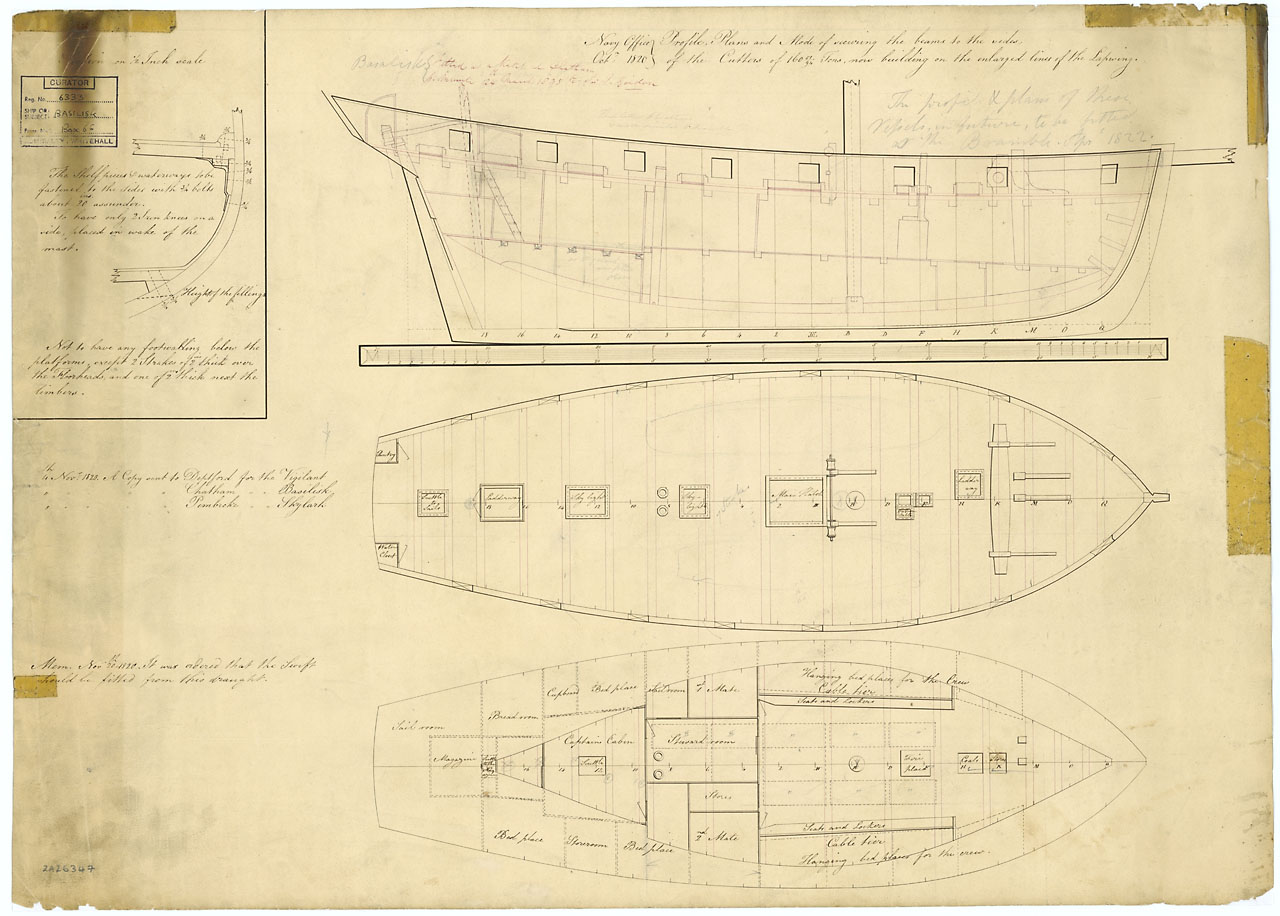 Navy Office Profile, Plans and Mode of securing the beams to the sides
Octr. 1820 of the Cutters of 160 Tons, now building on the enlarged lines of the Lapwing.
Basilisk
The profile & plans of these
Vessels in future, to be fitted
as the Bramble. Apl. 1822.
on ½ Inch scale
CURATOR
Reg. No. 6333
SHIP OR SUBJECT: BASILISK
Box 64
WHITEHALL
The Shelf pieces & waterways to be
fastened to the sides with ¾ bolts
about 20 ins. assunder.
To have only 2 Iron knees on a
side, placed in wake of the
mast.
Height of the fillings
Not to have any footwalling below the
platforms, except 2 Strakes of 2 in thick over
the Floorheads, and one of 2 in thick next the
timbers.
18 16 14 12 10 8 6 4 2 B D F H K M O Q
Pantry
Scuttle to Sails
Ladderway
Sky light
Sky light
Main Hatch
Ladder way
Water Closet
th Novr. 1820. A Copy sent to Deptford for the Vigilant
" " Chatham " " Basilisk
" " Pembroke " " Skylark
Mem. Novr. 1820. It was ordered that the Swift
should be fitted from this draught.
Sail room
Bread room
Cupboard
Bed place
1st Mate
Hanging bed places for the Crew
Cable tier
Seats and Lockers
Magazine
Captains Cabin
Scuttle
Steward room
Coals
Stores
Seats and Lockers
Cable tier
Hanging bed places for the crew.
Bed place
Storeroom
Bed place
2nd Mate
ZAZ6347